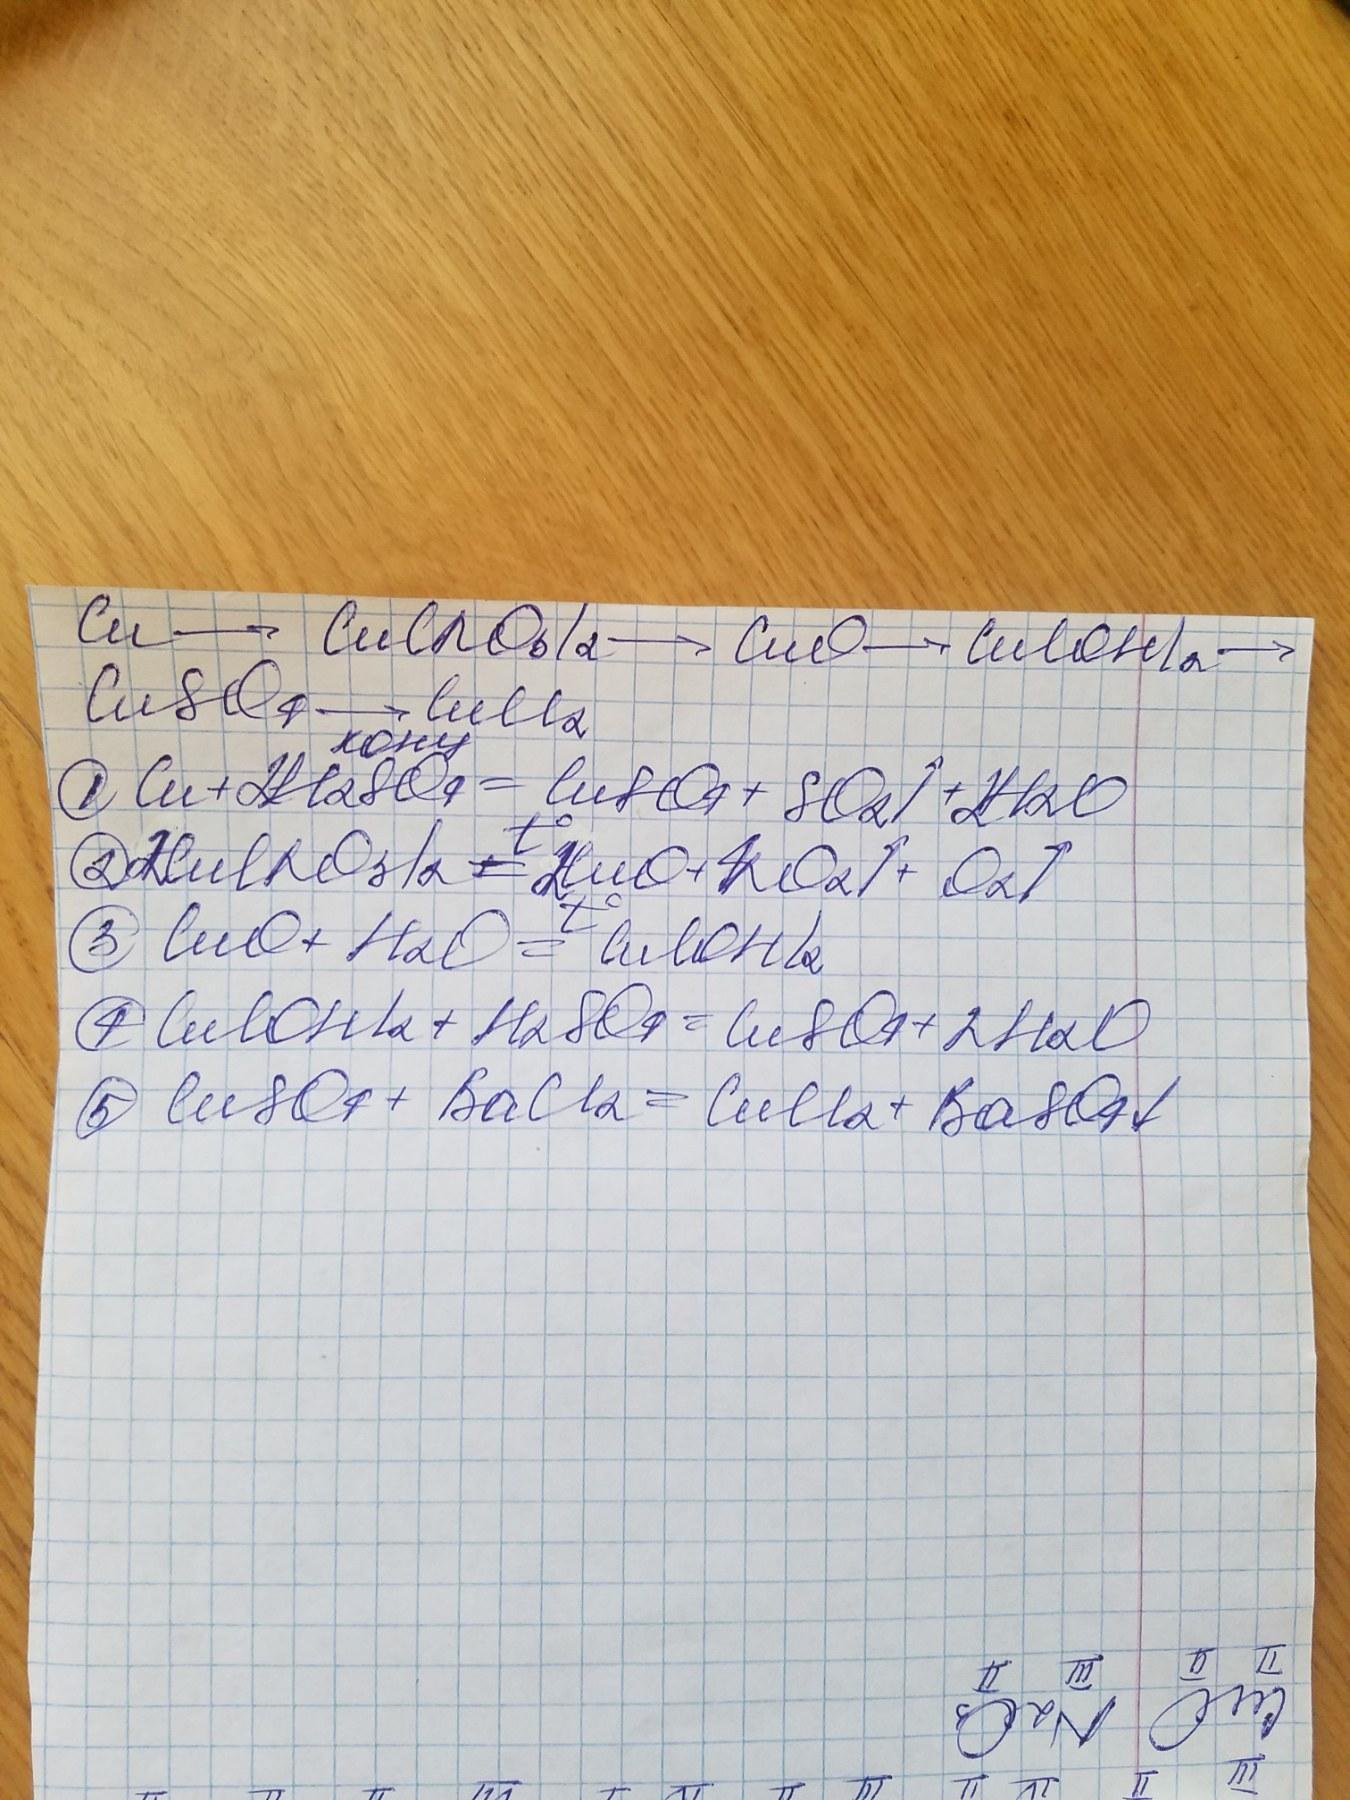 Cu → Cu(NO3)2 → CuO → Cu(OH)2 →
CuSO4 → CuCl2
конц
① Cu + 2H2SO4 = CuSO4 + SO2↑ + 2H2O
② 2Cu(NO3)2 =t° 2CuO + 4NO2↑ + O2↑
③ CuO + H2O =t° Cu(OH)2
④ Cu(OH)2 + H2SO4 = CuSO4 + 2H2O
⑤ CuSO4 + BaCl2 = CuCl2 + BaSO4↓
II II III II
CuO N2O3
III II IV II III II IV I VII II II II